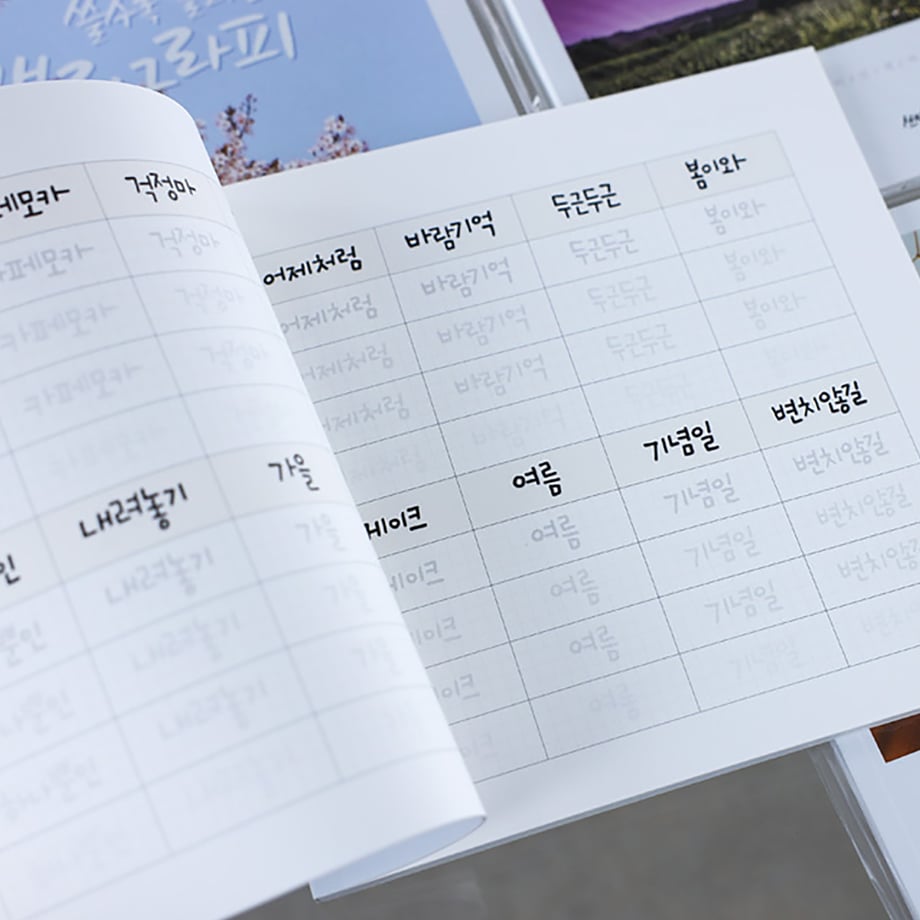 쓸수록
캘리그라피
페모카 걱정마
카페모카 걱정마
카페모카 걱정마
카페모카 걱정마
내려놓기 가을
내려놓기 가을
내려놓기 가을
내려놓기 가을
하나뿐인
어제처럼 바람기억 두근두근 봄이와
어제처럼 바람기억 두근두근 봄이와
어제처럼 바람기억 두근두근 봄이와
어제처럼 바람기억 두근두근 봄이와
어제처럼 바람기억 두근두근 봄이와
케이크 여름 기념일 변치않길
케이크 여름 기념일 변치않길
케이크 여름 기념일 변치않길
이크 여름 기념일 변치않길
이크 여름 기념일 변치